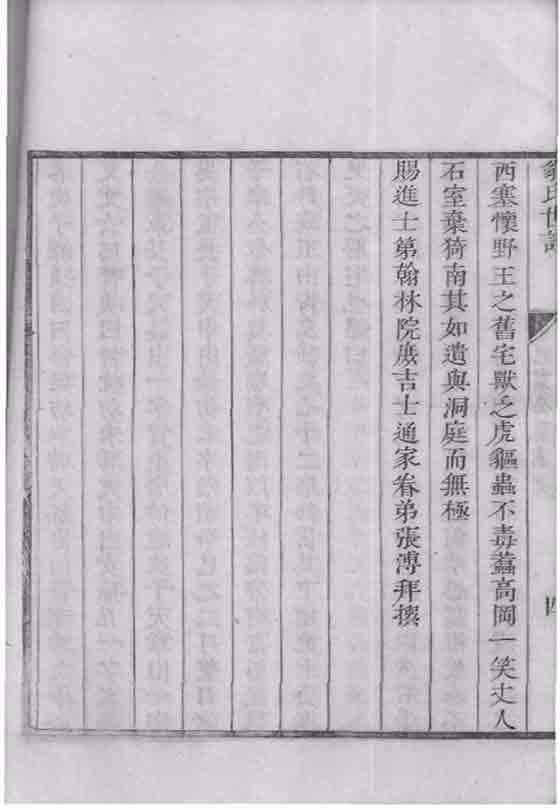 翁氏世
四
西塞懷野王之舊宅獸乏虎貙蟲不毒蠚高岡一笑丈人
石室棄猗南其如遺與洞庭而無極
賜進士第翰林院庶吉士通家眷弟張溥拜撰